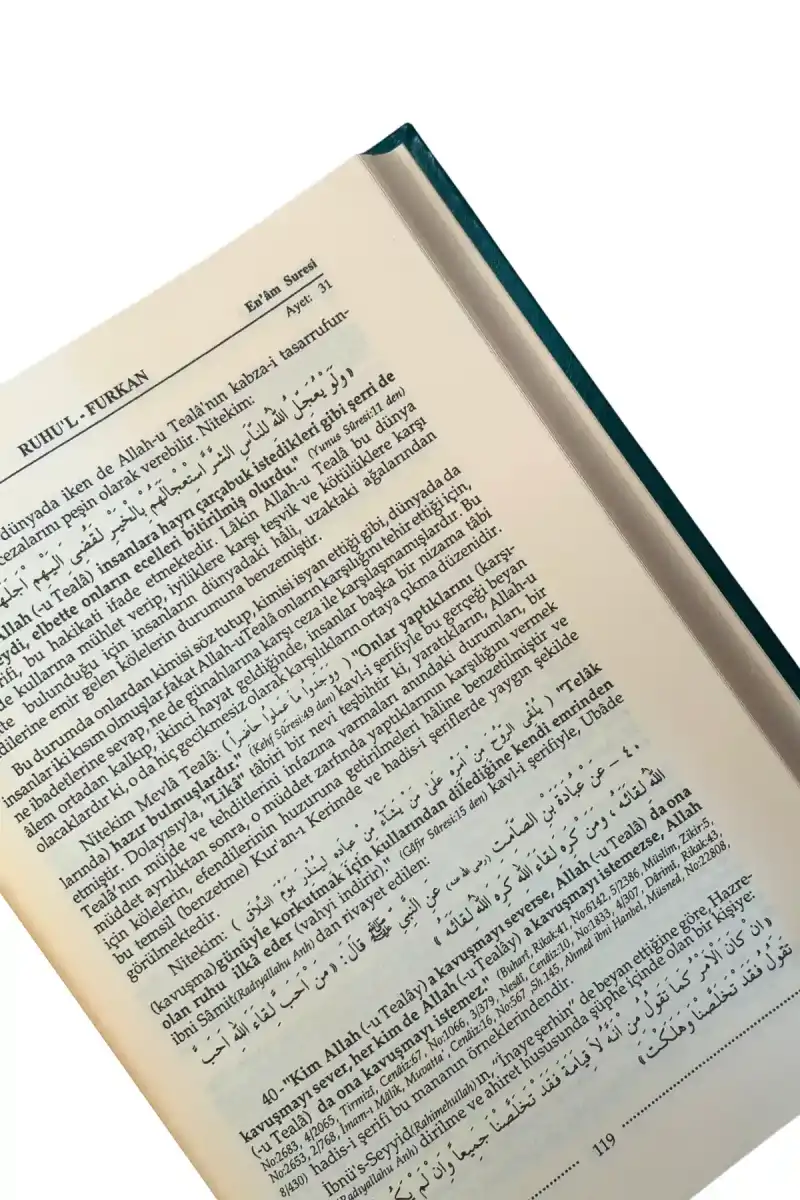 RUHU'L - FURKAN
En'âm Suresi
Ayet: 31
dünyada iken de Allah-u Teâlâ'nın kabza-i tasarrufun-
cezalarını peşin olarak verebilir. Nitekim:
«وَلَوْ يُعَجِّلُ اللّٰهُ لِلنَّاسِ الشَّرَّ اسْتِعْجَالَهُمْ بِالْخَيْرِ لَقُضِىَ اِلَيْهِمْ اَجَلُهُمْ
Allah (-u Teâlâ) insanlara hayrı çarçabuk istedikleri gibi şerri de
elbette onların ecelleri bitirilmiş olurdu." (Yunus Sûresi:11 den)
bu hakikati ifade etmektedir. Lâkin Allah-u Teâlâ bu dünya
kullarına mühlet verip, iyiliklere karşı teşvik ve kötülüklere karşı
bulunduğu için insanların dünyadaki hâli, uzaktaki ağalarından
emir gelen kölelerin durumuna benzemiştir.
Bu durumda onlardan kimisi söz tutup, kimisi isyan ettiği gibi, dünyada da
insanlar iki kısım olmuşlar, fakat Allah-u Teâlâ onların karşılığını tehir ettiği için,
ne ibadetlerine sevap, ne de günahlarına karşı ceza ile karşılaşmamışlardır. Bu
âlem ortadan kalkıp, ikinci hayat geldiğinde, insanlar başka bir nizama tâbi
olacaklardır ki, o da hiç gecikmesiz olarak karşılıkların ortaya çıkma düzenidir.
Nitekim Mevlâ Teâlâ: ( وَوَجَدُوا مَا عَمِلُوا حَاضِرًا ) "Onlar yaptıklarını (karşı-
larında) hazır bulmuşlardır." (Kehf Sûresi:49 dan) kavl-i şerifiyle bu gerçeği beyan
etmiştir. Dolayısıyla, "Likâ" tâbiri bir nevi teşbihtir ki, yaratıkların, Allah-u
Teâlâ'nın müjde ve tehditlerini infazına varmaları anındaki durumları, bir
müddet ayrılıktan sonra, o müddet zarfında yaptıklarının karşılığını vermek
için kölelerin, efendilerinin huzuruna getirilmeleri hâline benzetilmiştir ve
bu temsil (benzetme) Kur'an-ı Kerimde ve hadis-i şeriflerde yaygın şekilde
görülmektedir.
Nitekim: ( يُلْقِى الرُّوحَ مِنْ اَمْرِهِ عَلٰى مَنْ يَشَاءُ مِنْ عِبَادِهِ لِيُنْذِرَ يَوْمَ التَّلَاقِ ) "Telâk
(kavuşma) günüyle korkutmak için kullarından dilediğine kendi emrinden
olan ruhu ilkâ eder (vahyi indirir)." (Gâfir Sûresi:15 den) kavl-i şerifiyle, Ubâde
ibni Sâmit (Radıyallahu Anh) dan rivayet edilen:
٤٠ – عَنْ عُبَادَةَ بْنِ الصَّامِتِ عَنِ النَّبِىِّ ﷺ قَالَ: «مَنْ اَحَبَّ لِقَاءَ اللّٰهِ اَحَبَّ
اللّٰهُ لِقَائَهُ، وَمَنْ كَرِهَ لِقَاءَ اللّٰهِ كَرِهَ اللّٰهُ لِقَائَهُ»
40- "Kim Allah (-u Teâlây) a kavuşmayı severse, Allah (-u Teâlâ) da ona
kavuşmayı sever, her kim de Allah (-u Teâlây) a kavuşmayı istemezse, Allah
(-u Teâlâ) da ona kavuşmayı istemez." (Buharî, Rikak:41, No:6142, 5/2386, Müslim, Zikir:5,
No:2683, 4/2065, Tirmizî, Cenâiz:67, No:1066, 3/379, Nesâî, Cenâiz:10, No:1833, 4/307, Dârimî, Rikak:43,
No:2653, 2/768, İmam-ı Mâlik, Muvatta', Cenâiz:16, No:567, Sh.145, Ahmed ibni Hanbel, Müsned, No:22808,
8/430) hadis-i şerifi bu mananın örneklerindendir.
İbnü's-Seyyid (Rahimehullah)ın, "İnaye şerhin" de beyan ettiğine göre, Hazre-
(Radıyallahu Anh) dirilme ve ahiret hususunda şüphe içinde olan bir kişiye:
«اِنْ كَانَ الْاَمْرُ كَمَا تَقُولُ مِنْ اَنَّهُ لَا قِيَامَةَ فَقَدْ تَخَلَّصْنَا جَمِيعًا وَاِنْ لَمْ
تَقُولُ فَقَدْ تَخَلَّصْنَا وَهَلَكْتَ»
119